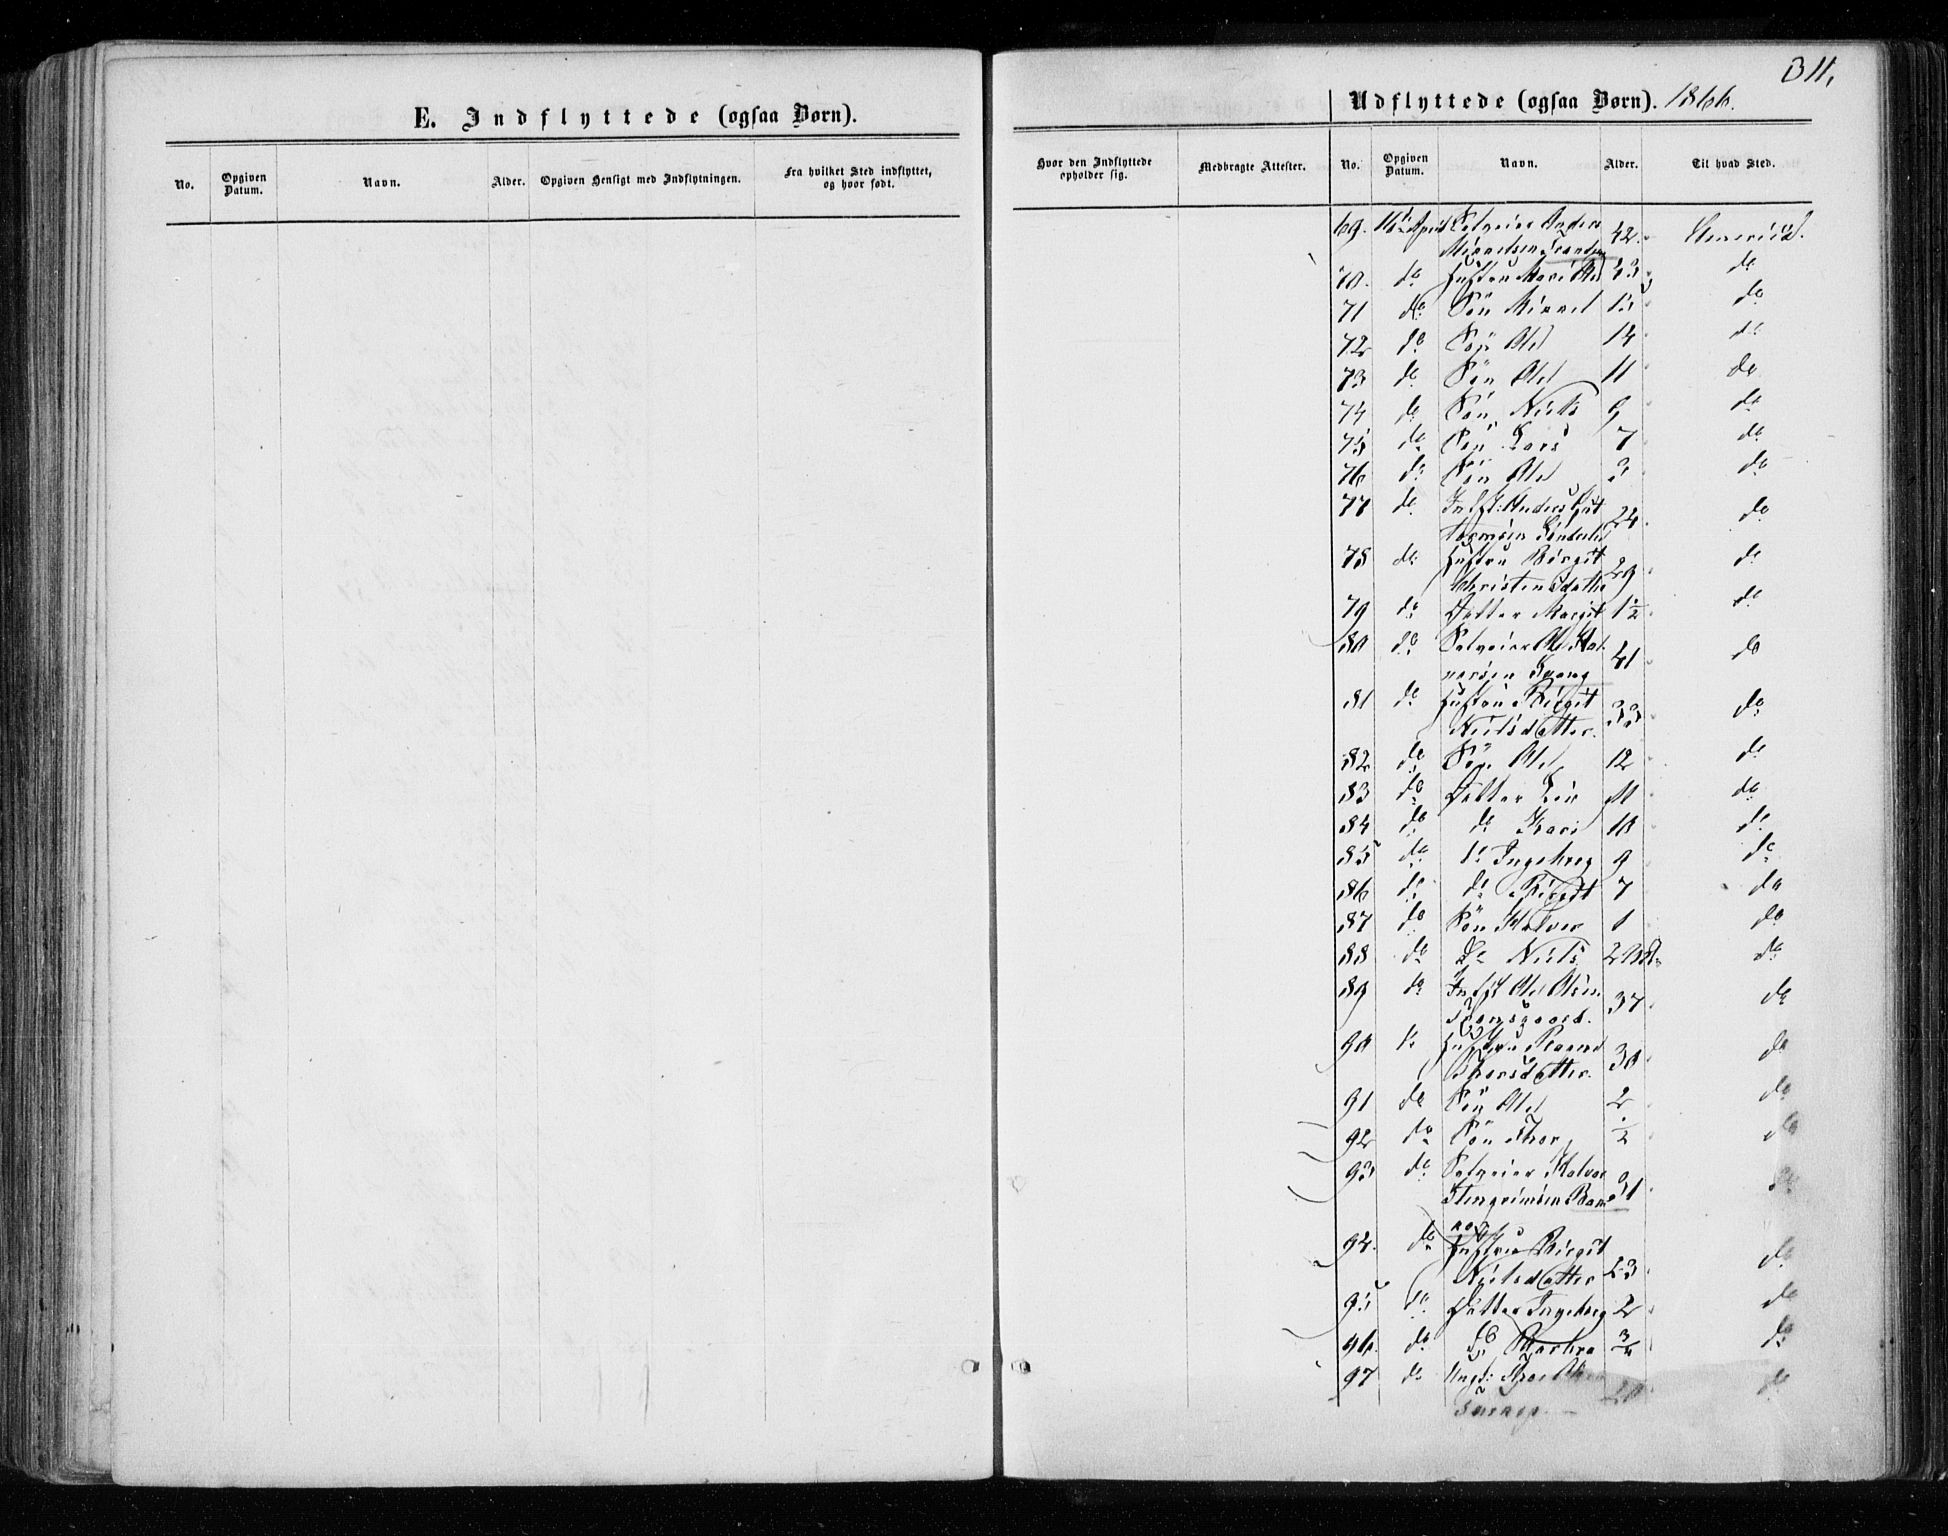 311.
E. Indflyttede (ogsaa Børn).
No. Opgiven Datum. Navn. Alder. Opgiven Hensigt med Indflytningen. Fra hvilket Sted indflyttet, og hvor født.
Udflyttede (ogsaa Børn). 1866.
Hvor den Indflyttede opholder sig. Medbragte Attester. No. Opgiven Datum. Navn. Alder. Til hvad Sted.
69. 16 April Selveier Anders 42. America.
Mikkelsen
70. do Hustru Kari 43 do
71 do Søn Mikkel 15 do
72 do Søn Ole 14 do
73 do Søn Ole 11 do
74 do Søn Niels 9 do
75 do Søn Lars 7 do
76 do Søn Ole 3 do
77 do Indst: Anders 24 do
78 do Hustru Birgit 29 do
Christensdatter
79 do Datter Margit 1½ do
80 do Selveier Ole Hal- 41 do
vorsen
81 do Hustru Birgit 33 do
Nielsdatter.
82 do Søn Ole 12 do
83 do Datter 11 do
84 do do Kari 10 do
85 do do Ingebreg 9 do
86 do do Birgit 7 do
87 do Søn Halvor 1 do
88 do do Niels do
89 do Indst Ole Olsen 37 do
90 do Hustru 30 do
Thorsdatter.
91 do Søn Ole 2 do
92 do Søn Thor ½ do
93 do Selveier Halvor 31 do
94. do Hustru Birgit 23 do
Nielsdatter
95 do Datter Ingebreg 2 do
96. do do Barbra ¾ do
97 do Ungk: do